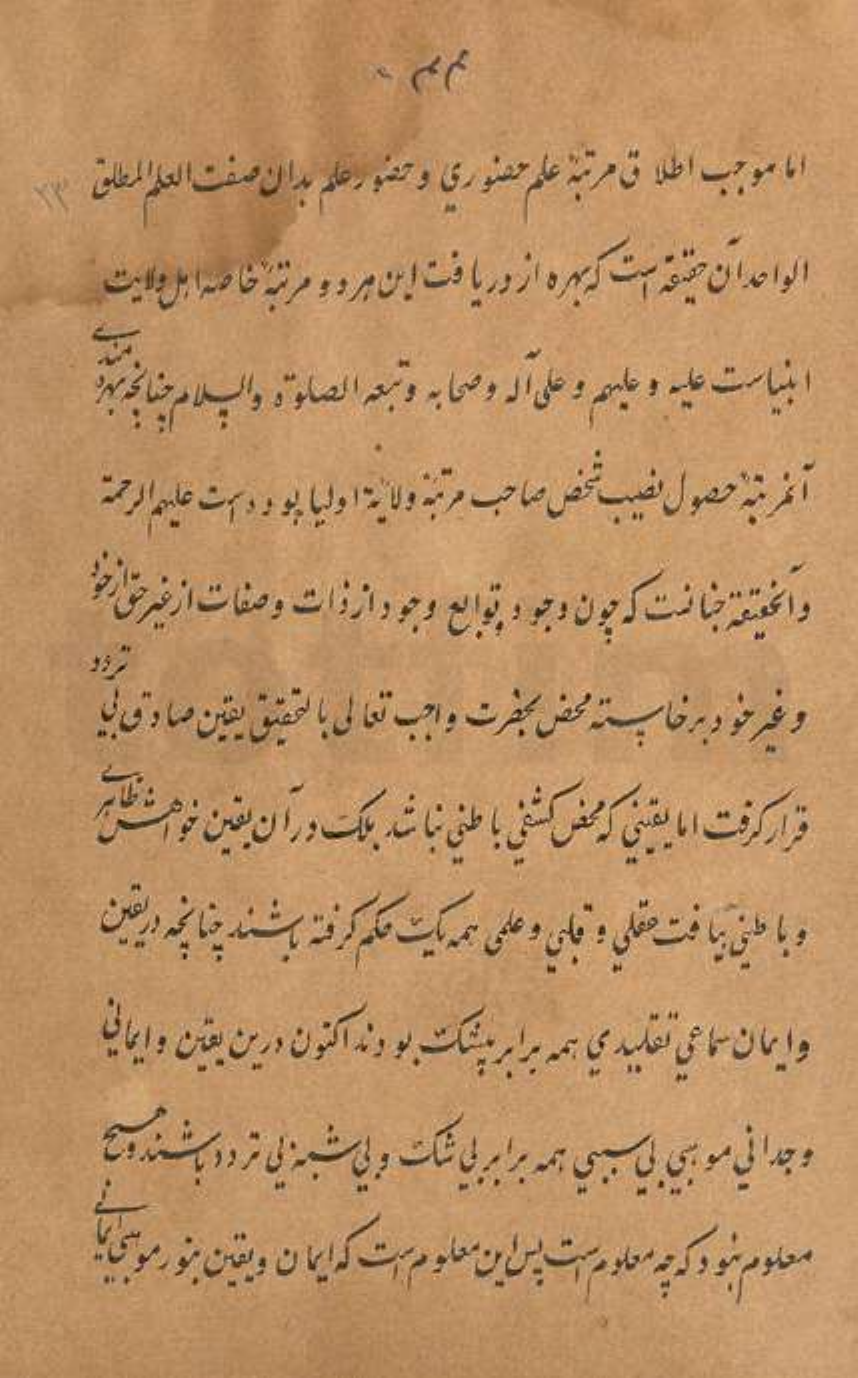 اما موجب اطلاق مرتبهٔ علم حضوري و حضور علم بدان صفت العلم المطلق
۲۳
الواحد آن حقیقة است که بهره از دریافت این هر دو مرتبهٔ خاصه اهل ولایت
ابنیاست علیه و علیهم و علی آله و صحابه و تبعه الصلوة والسلام چنانچه بهره مندے
آنمرتبهٔ حصول نصیب شخص صاحب مرتبهٔ ولایة اولیا بود دست علیهم الرحمة
و آنحقیقة چنانست که چون وجود و توابع وجود از ذات و صفات از غیر حق از خود
و غیر خود برخاسته محض بحضرت واجب تعالی بالتحقیق یقین صادق بي تردد
قرار گرفت اما یقیني که محض کشفي باطني نباشد بلکه در آن یقین خواهش ظاهرے
و باطني بیافت عقلي و قلبي و علمی همه یک حکم گرفته باشند چنانچه در یقین
و ایمان سماعي تقلیدي همه برابر بیشک بودند اکنون درین یقین و ایماني
وجداني موهبي بي سببي همه برابر بي شک و بي شبهه بي تردد باشند و هیچ
معلوم نبود که چه معلوم است پس این معلوم است که ایمان و یقین بنور موهبي ایمانے